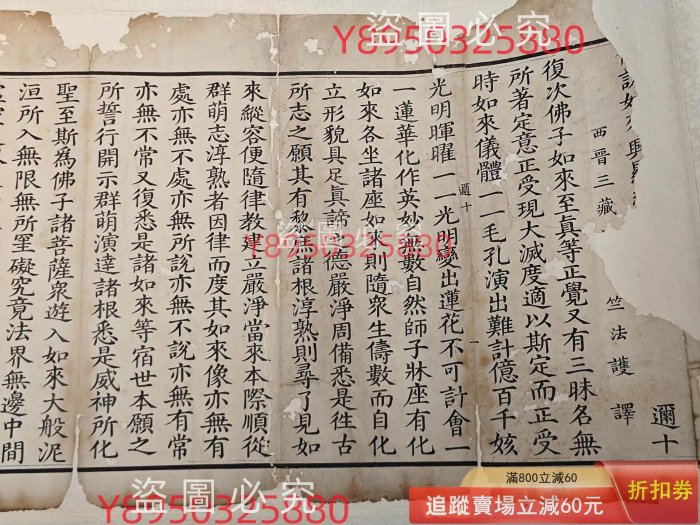 盜圖必究
Y8950325880
說如來興
邇十
西晉三藏 竺法護 譯
復次佛子如來至真等正覺又有三昧名無
所著定意正受現大滅度適以斯定而正受
時如來儀體一一毛孔演出難計億百千姟
邇十 一
光明暉曜一一光明變出蓮花不可計會一
一蓮華化作英妙無數自然師子牀座有化
如來各坐諸座如來則隨衆生儔數而自化
立形貌具足真諦之德嚴淨周備悉是往古
所志之願其有黎庶諸根淳熟則尋了見如
來縱容便隨律教建立嚴淨當來本際順從
群萌志淳熟者因律而度其如來像亦無有
處亦無不處亦無所說亦無不說亦無有常
亦無不常又復悉是諸如來等宿世本願之
所誓行開示群萌演達諸根悉是威神所化
聖至斯爲佛子諸菩薩衆遊入如來大般泥
洹所入無限無所罣礙究竟法界無邊中間
盜圖必究
Y8950325880
盜圖必究
Y8950325880
滿800立減60
追蹤賣場立減60元
折扣券